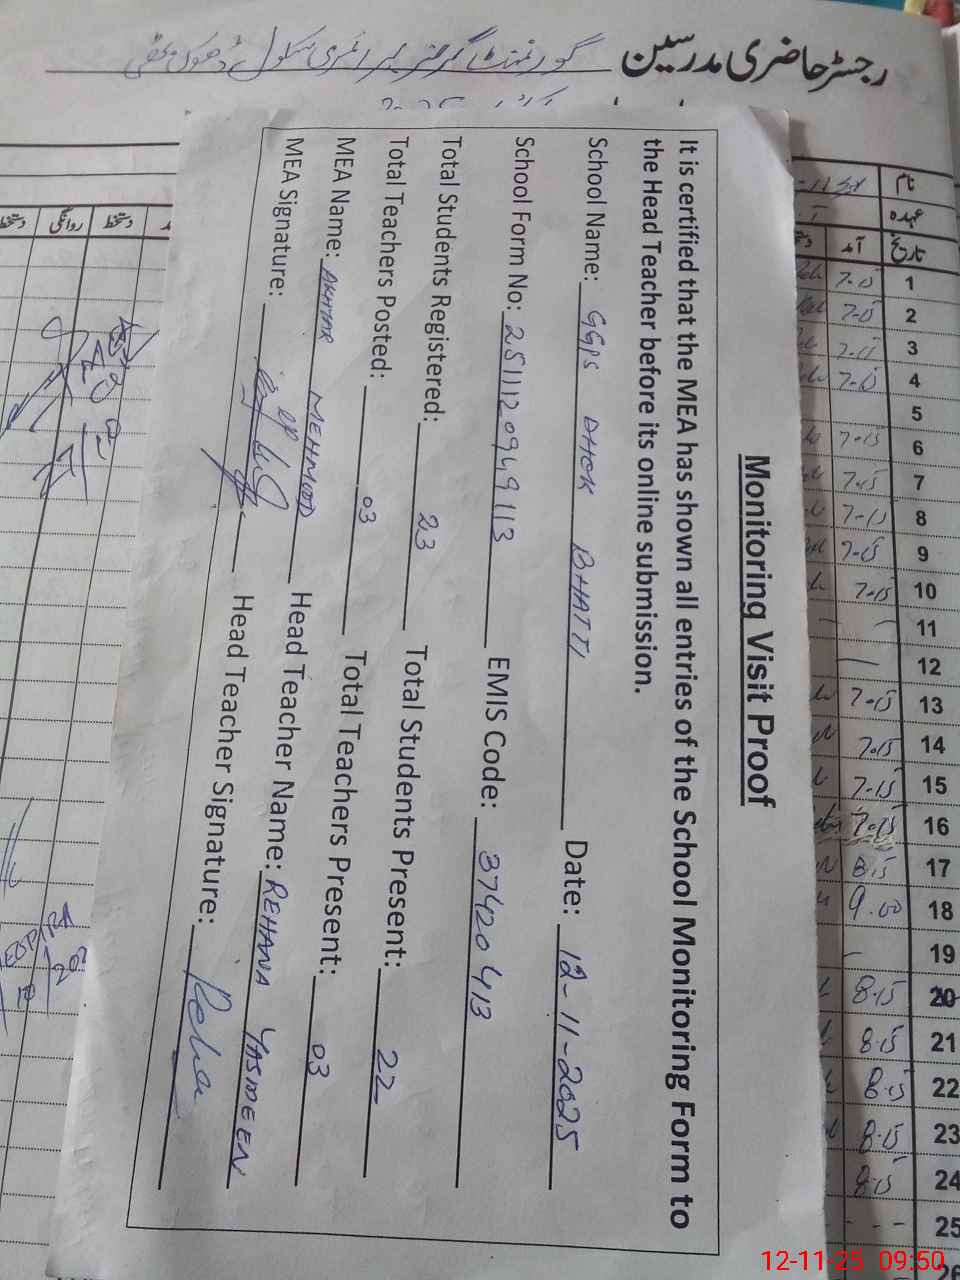 رجسٹر حاضری مدرسین گورنمنٹ گرلز پرائمری سکول ڈھوک بھٹی
Monitoring Visit Proof
It is certified that the MEA has shown all entries of the School Monitoring Form to
the Head Teacher before its online submission.
School Name: GGPS DHOK BHATTI Date: 12-11-2025
School Form No: 2511120949113 EMIS Code: 37420413
Total Students Registered: 23 Total Students Present: 22
Total Teachers Posted: 03 Total Teachers Present: 03
MEA Name: AKHTAR MEHMOOD Head Teacher Name: REHANA YASMEEN
MEA Signature: Head Teacher Signature: Reha
نام
عہدہ
تاریخ آمد
روانگی دستخط
1 7-15
2 7-15
3 7-15
4 7-15
5
6 7-15
7 7-15
8 7-15
9 7-15
10 7-15
11 - -
12 -
13 7-15
14 7-15
15 7-15
16 7-15
17 8-15
18 9.00
19 -
20 8-15
21 8-15
22 8-15
23 8-15
24 8-15
25 - - - -
26
12-11-25 09:50